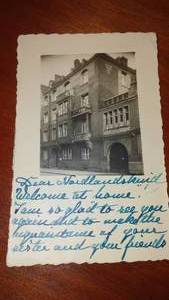 Dear Nordlandskind
Welcome at home.
I am so glad to see you
again and to make the
aquaintance of your
sister and your friends